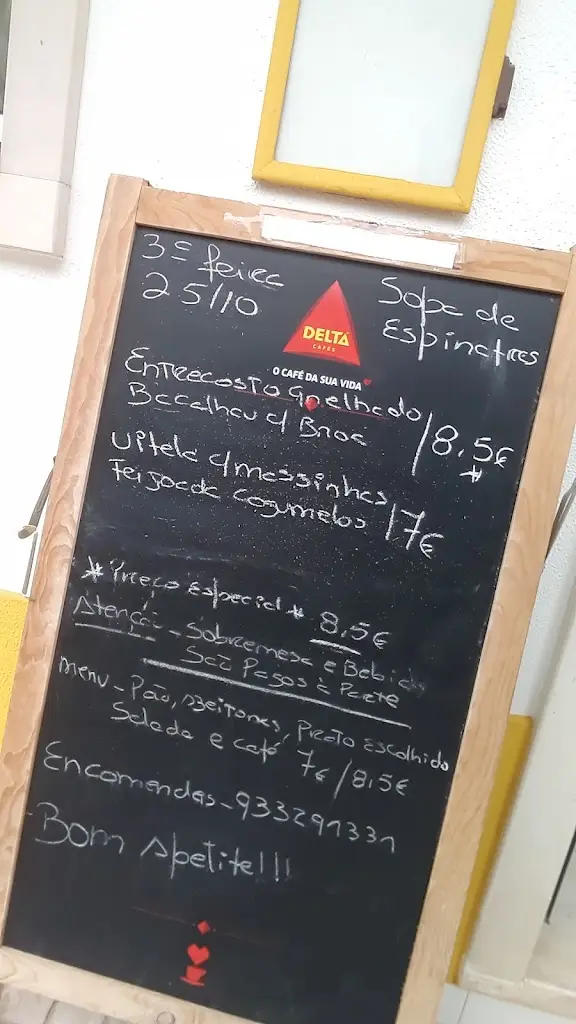 3ª feira
25/10
Sopa de
Espinafres
DELTA
CAFÉS
O CAFÉ DA SUA VIDA
Entrecosto Grelhado
Bacalhau c/ Broa
/8,5€
*
Vitela c/ massinhas
Feijoada cogumelos
/7€
* Preço Especial * 8,5€
Atenção - Sobremesa e Bebida
São Pagos à Parte
Menu - Pão, Azeitonas, Prato Escolhido
Salada e café 7€ /8,5€
Encomendas - 933291331
Bom Apetite!!!